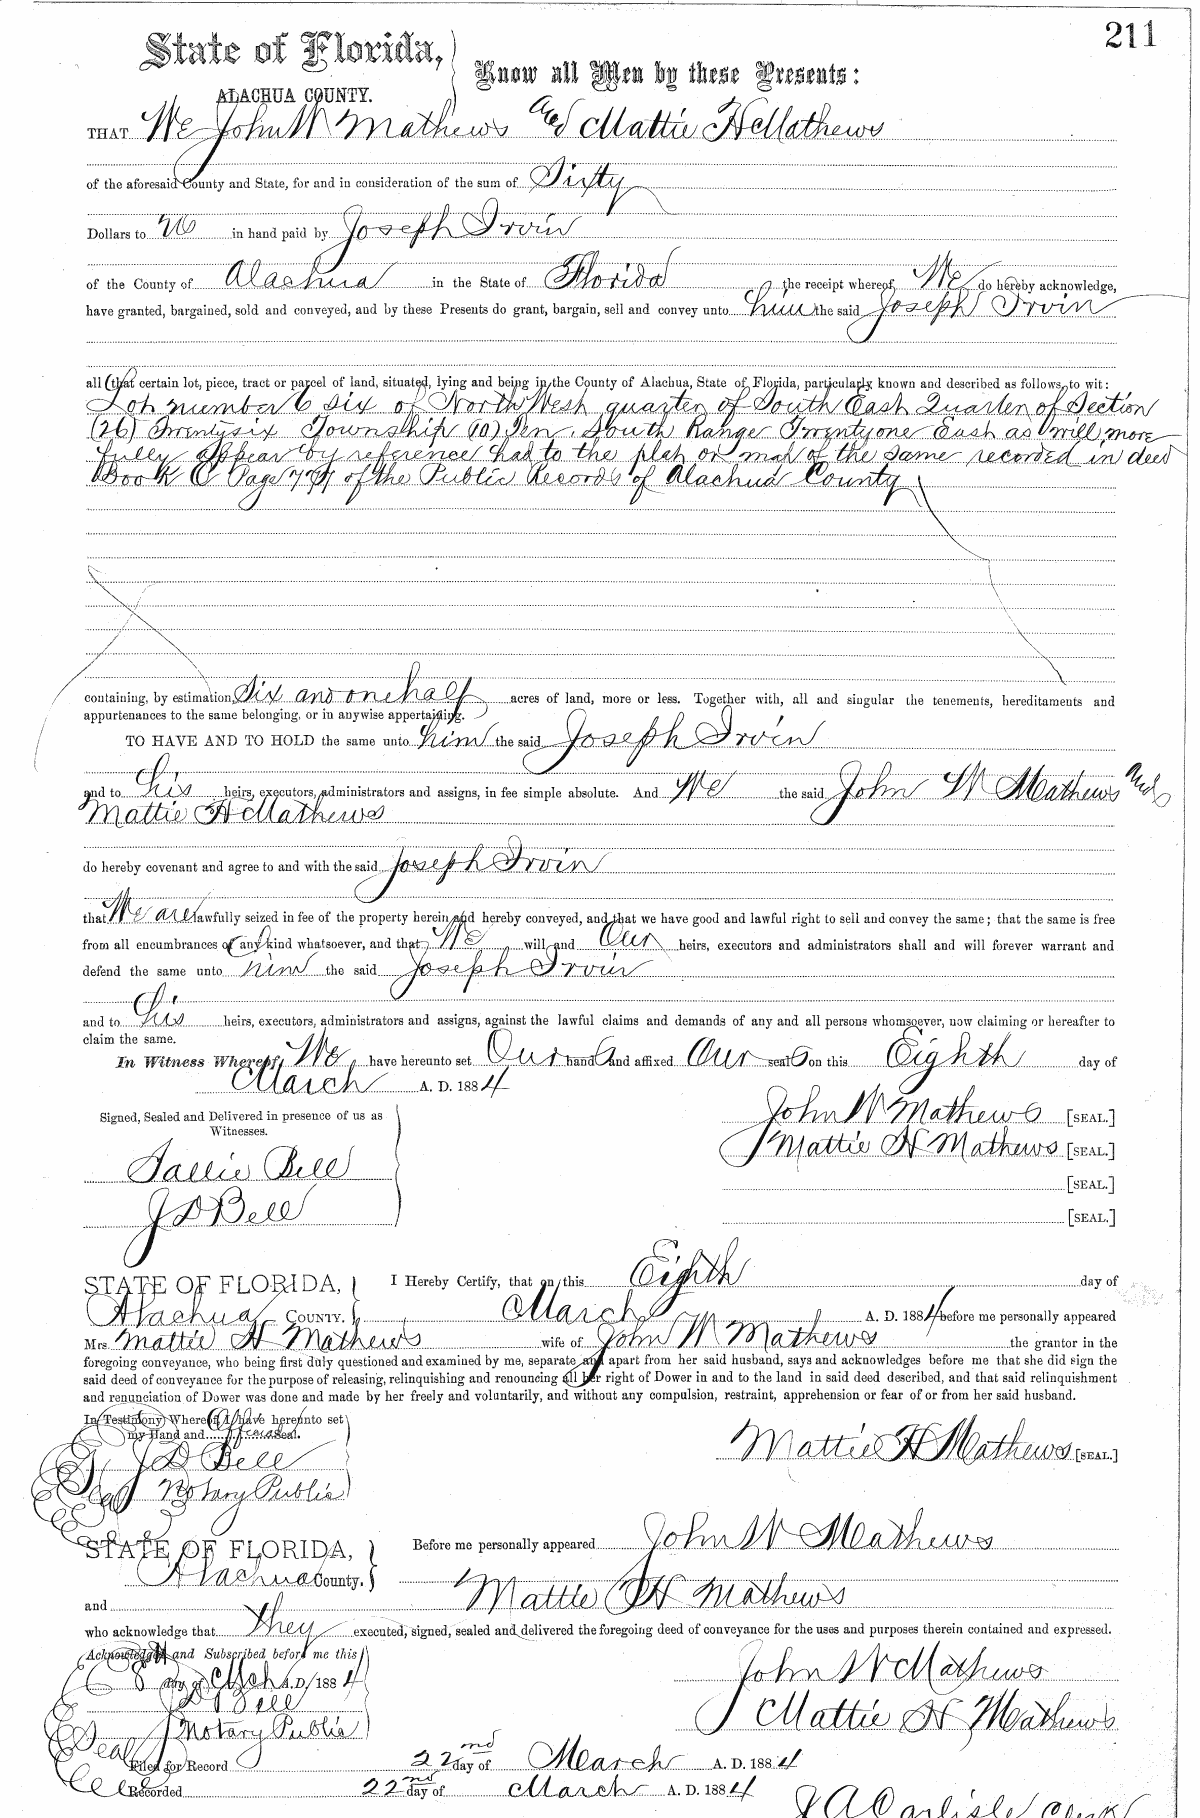 211
State of Florida,
ALACHUA COUNTY.
Know all Men by these Presents:
THAT We John W Mathews and Mattie H Mathews
of the aforesaid County and State, for and in consideration of the sum of Sixty
Dollars to us in hand paid by Joseph Irvin
of the County of Alachua in the State of Florida the receipt whereof We do hereby acknowledge,
have granted, bargained, sold and conveyed, and by these Presents do grant, bargain, sell and convey unto him the said Joseph Irvin
all that certain lot, piece, tract or parcel of land, situated, lying and being in the County of Alachua, State of Florida, particularly known and described as follows, to wit:
Lot number 6 six of North West quarter of South East Quarter of Section
(26) Twentysix Township (10) Ten, South Range Twentyone East as will more
fully appear by reference had to the plat or map of the same recorded in deed
Book C Page of the Public Records of Alachua County
containing, by estimation, Six and one half acres of land, more or less. Together with, all and singular the tenements, hereditaments and
appurtenances to the same belonging, or in anywise appertaining.
TO HAVE AND TO HOLD the same unto him the said Joseph Irvin
and to his heirs, executors, administrators and assigns, in fee simple absolute. And We the said John W Mathews and
Mattie H Mathews
do hereby covenant and agree to and with the said Joseph Irvin
that We are lawfully seized in fee of the property herein and hereby conveyed, and that we have good and lawful right to sell and convey the same; that the same is free
from all encumbrances of any kind whatsoever, and that We will and Our heirs, executors and administrators shall and will forever warrant and
defend the same unto him the said Joseph Irvin
and to his heirs, executors, administrators and assigns, against the lawful claims and demands of any and all persons whomsoever, now claiming or hereafter to
claim the same.
In Witness Whereof, We have hereunto set Our hands and affixed Our seals on this Eighth day of
March A. D. 1884
Signed, Sealed and Delivered in presence of us as
Witnesses.
John W Mathews [SEAL.]
Mattie H Mathews [SEAL.]
Sallie Bell
[SEAL.]
J D Bell
[SEAL.]
STATE OF FLORIDA, I Hereby Certify, that on this Eighth day of
Alachua COUNTY. March A. D. 1884 before me personally appeared
Mrs. Mattie H Mathews wife of John W Mathews the grantor in the
foregoing conveyance, who being first duly questioned and examined by me, separate and apart from her said husband, says and acknowledges before me that she did sign the
said deed of conveyance for the purpose of releasing, relinquishing and renouncing all her right of Dower in and to the land in said deed described, and that said relinquishment
and renunciation of Dower was done and made by her freely and voluntarily, and without any compulsion, restraint, apprehension or fear of or from her said husband.
In Testimony Whereof, I have hereunto set
my Hand and official seal.
Mattie H Mathews [SEAL.]
J D Bell
Notary Public
Seal
STATE OF FLORIDA,
Alachua County.
Before me personally appeared John W Mathews
and Mattie H Mathews
who acknowledge that they executed, signed, sealed and delivered the foregoing deed of conveyance for the uses and purposes therein contained and expressed.
Acknowledged and Subscribed before me this
8th day of Mch A. D. 1884
John W Mathews
J D Bell
Mattie H Mathews
Notary Public
Seal
Filed for Record 22nd day of March A. D. 1884
Recorded 22nd day of March A. D. 1884
J A Carlisle Clerk